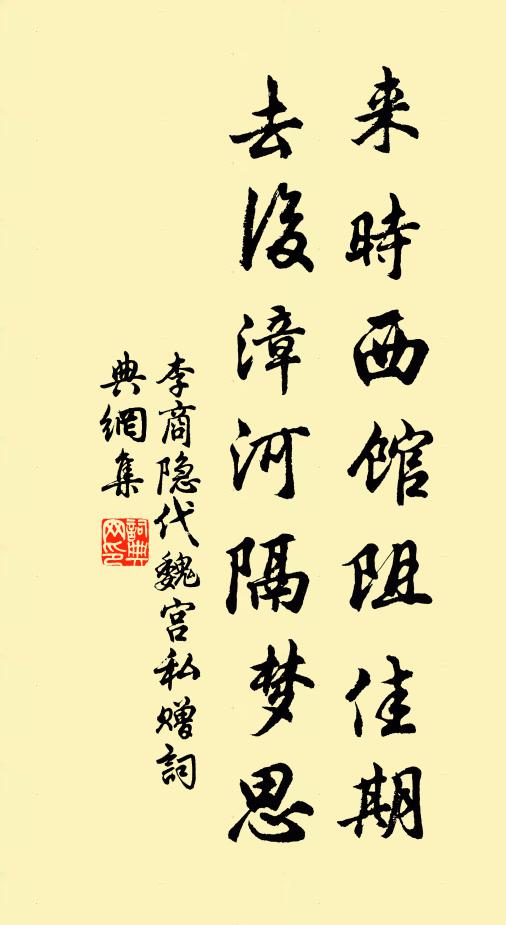 来時西館阻佳期
去後漳河隔梦思
李商隐代魏宫私赠詞
典網集
詞典网印